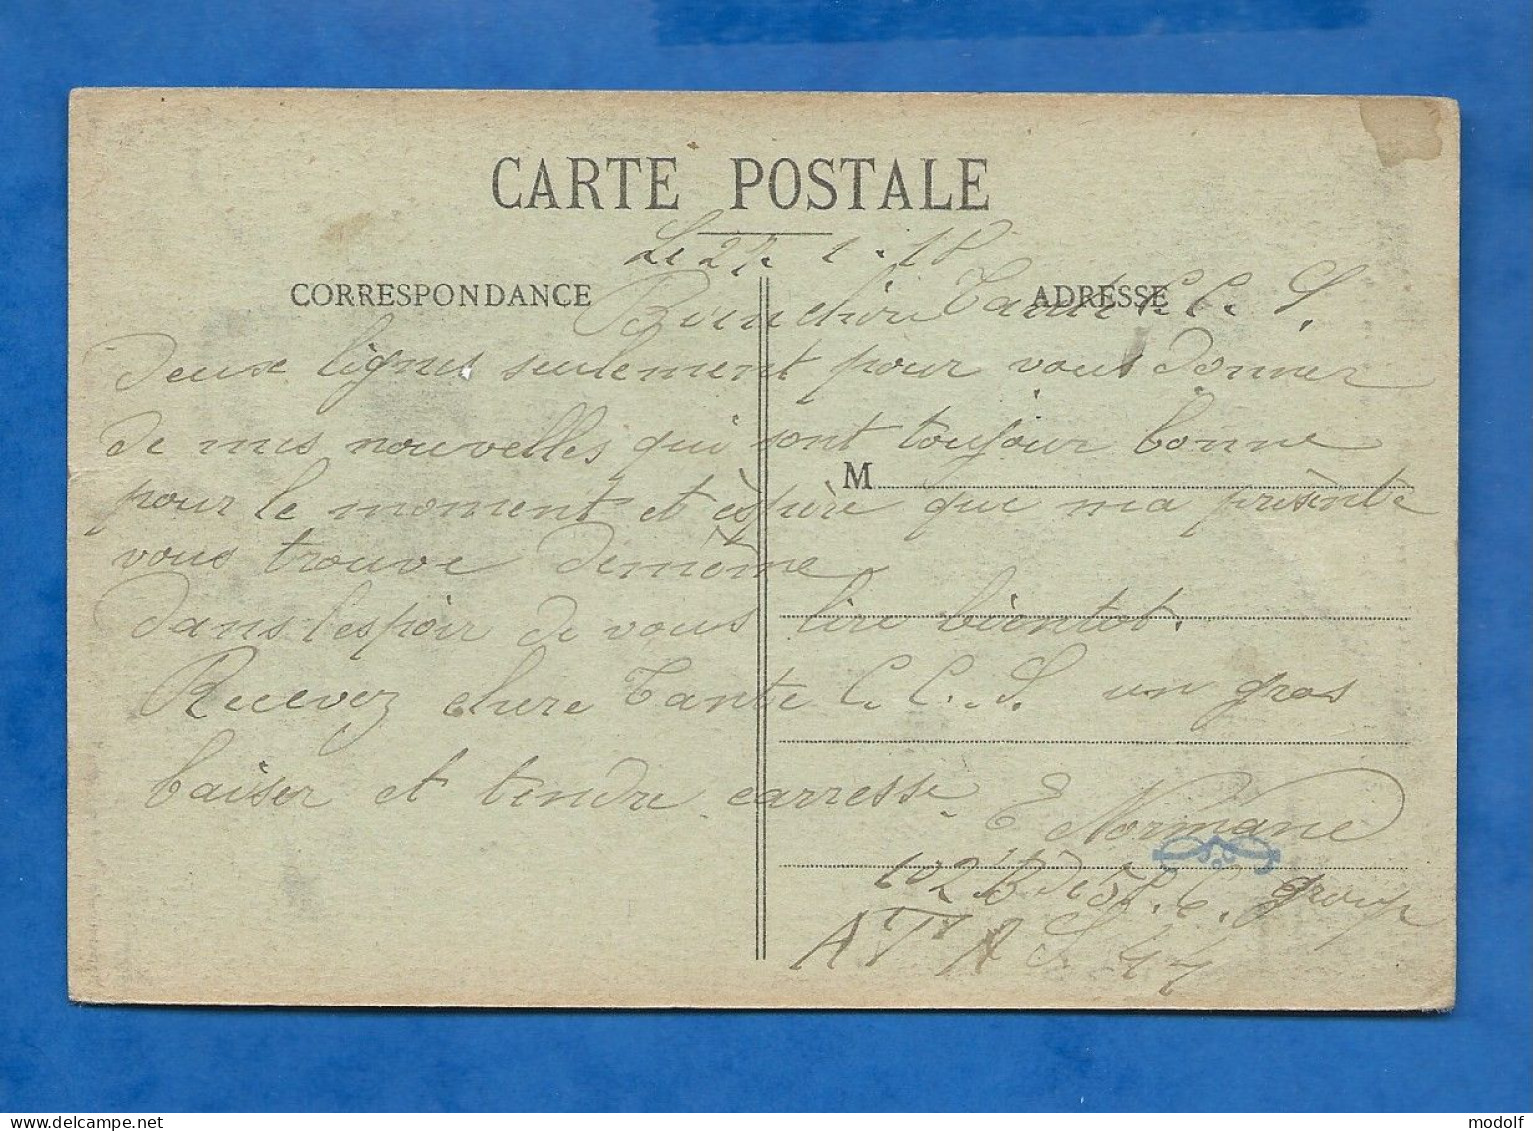 CARTE POSTALE
Le 27. 1. 18
CORRESPONDANCE
ADRESSE
Bien chère Tante C. C. S.
deux lignes seulement pour vous donner
de mes nouvelles qui sont toujour bonne
M
pour le moment et èspère que ma prèsente
vous trouve demême
dans l'espoir de vous lire bientot.
Recevez chère Tante C. C. S. un gros
baiser et tendre carresse
E Normane
102 groupe
modolf